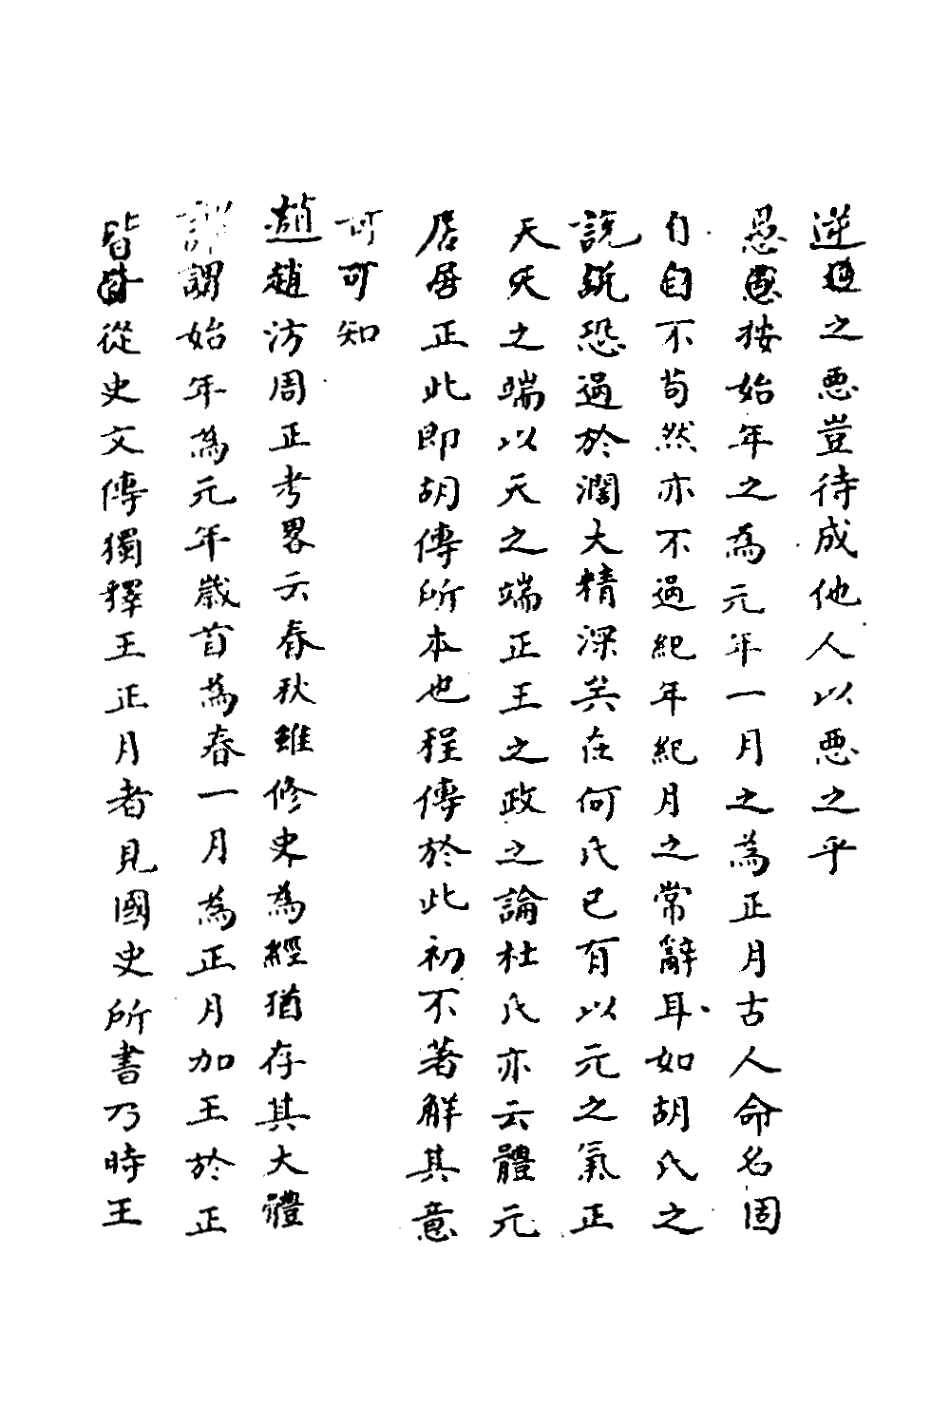 逆逆之悪豈待成他人以悪之乎
愚愚按始年之為元年一月之為正月古人命名固
自自不苟然亦不過紀年紀月之常辭耳如胡氏之
說說恐過於濶大精深矣在何氏已有以元之氣正
天天之端以天之端正王之政之論杜氏亦云體元
居居正此即胡傳所本也程傳於此初不著解其意
可可知
趙趙汸周正考畧云春秋雖修史為經猶存其大體
謂謂始年為元年歲首為春一月為正月加王於正
皆皆從史文傳獨釋王正月者見國史所書乃時王